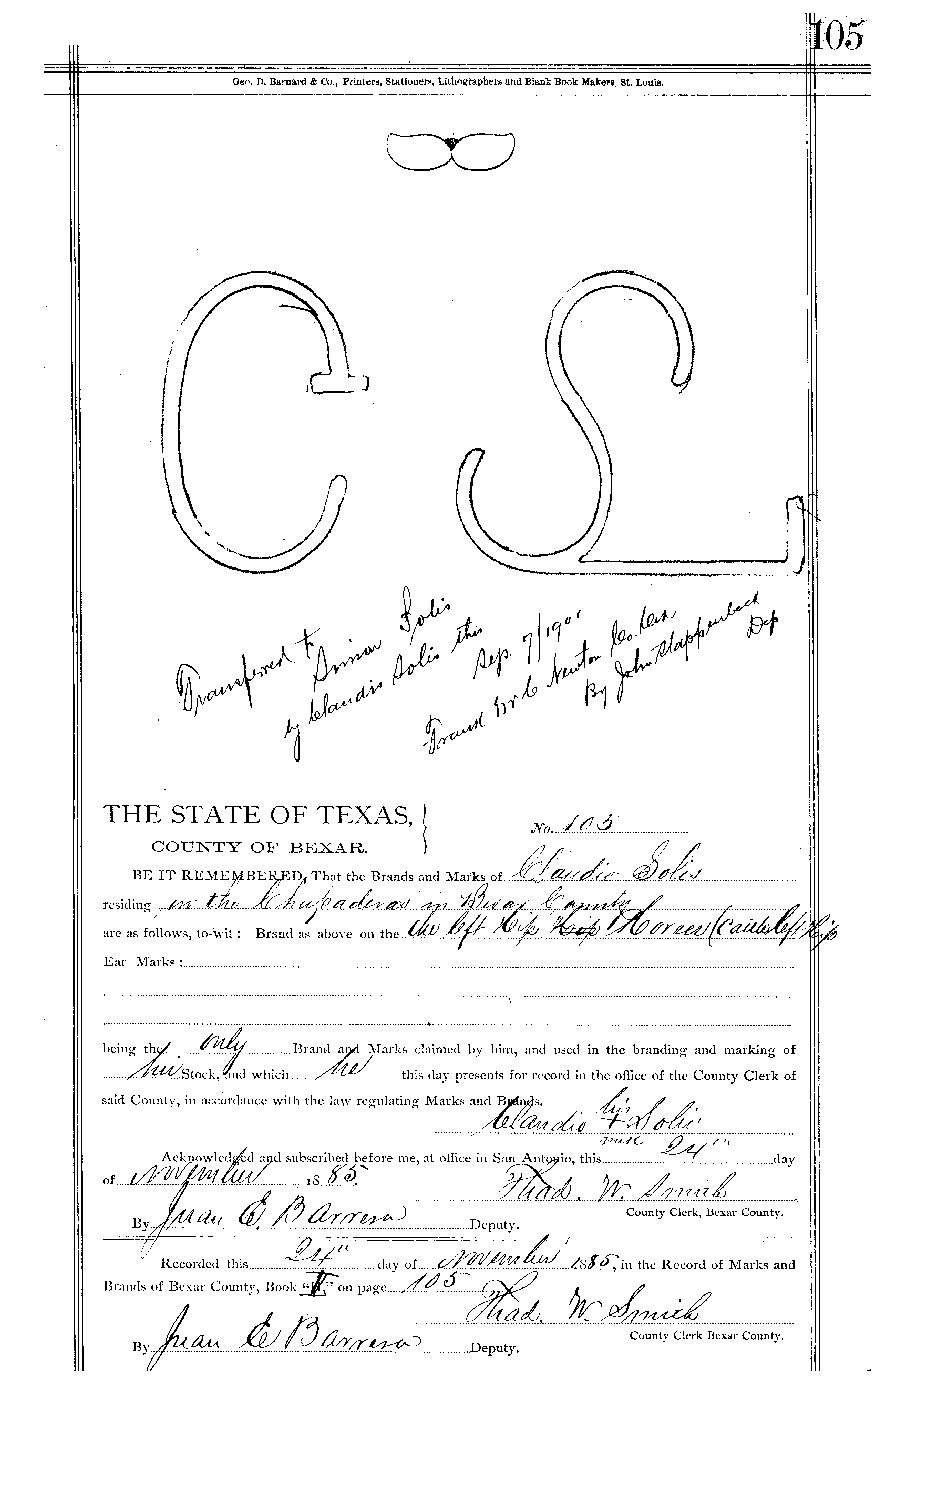 105
Geo. D. Barnard & Co., Printers, Stationers, Lithographers and Blank Book Makers, St. Louis.
C S
Transferred to
Simon Solis
by Claudio Solis this
Sep. 7/1901
Frank R Newton Co. Clerk
By John Stappenbeck
Dep
THE STATE OF TEXAS,
COUNTY OF BEXAR.
No. 105
BE IT REMEMBERED, That the Brands and Marks of Claudio Solis
residing in the Chupaderas in Bexar County
are as follows, to-wit: Brand as above on the the left Hip Hip Horses (cattle left Hip
Ear Marks:
being the only Brand and Marks claimed by him, and used in the branding and marking of
his Stock, and which he this day presents for record in the office of the County Clerk of
said County, in accordance with the law regulating Marks and Brands.
Claudio his + mark Solis
Acknowledged and subscribed before me, at office in San Antonio, this 24" day
of November 1885. Thad. W. Smith
County Clerk, Bexar County.
By Juan E. Barrera Deputy.
Recorded this 24" day of November 1885, in the Record of Marks and
Brands of Bexar County, Book " " on page 105
Thad. W. Smith
County Clerk Bexar County.
By Juan E Barrera Deputy.